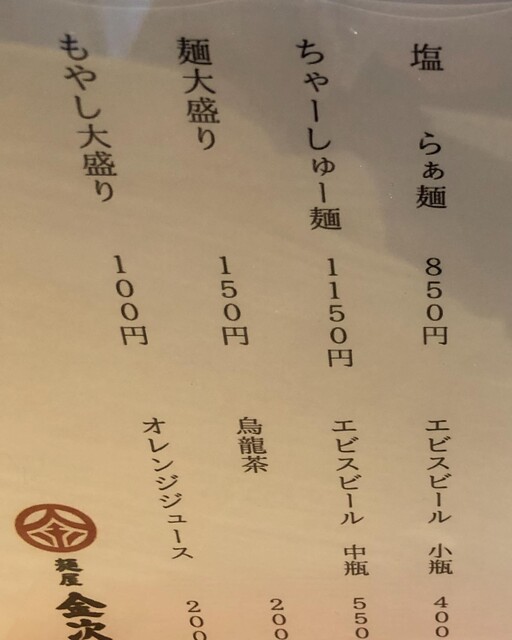 塩 らぁ麺 850円
ちゃーしゅー麺 1150円
麺大盛り 150円
もやし大盛り 100円
エビスビール 小瓶 400
エビスビール 中瓶 550
烏龍茶 200
オレンジジュース 200
金
麺屋
金次